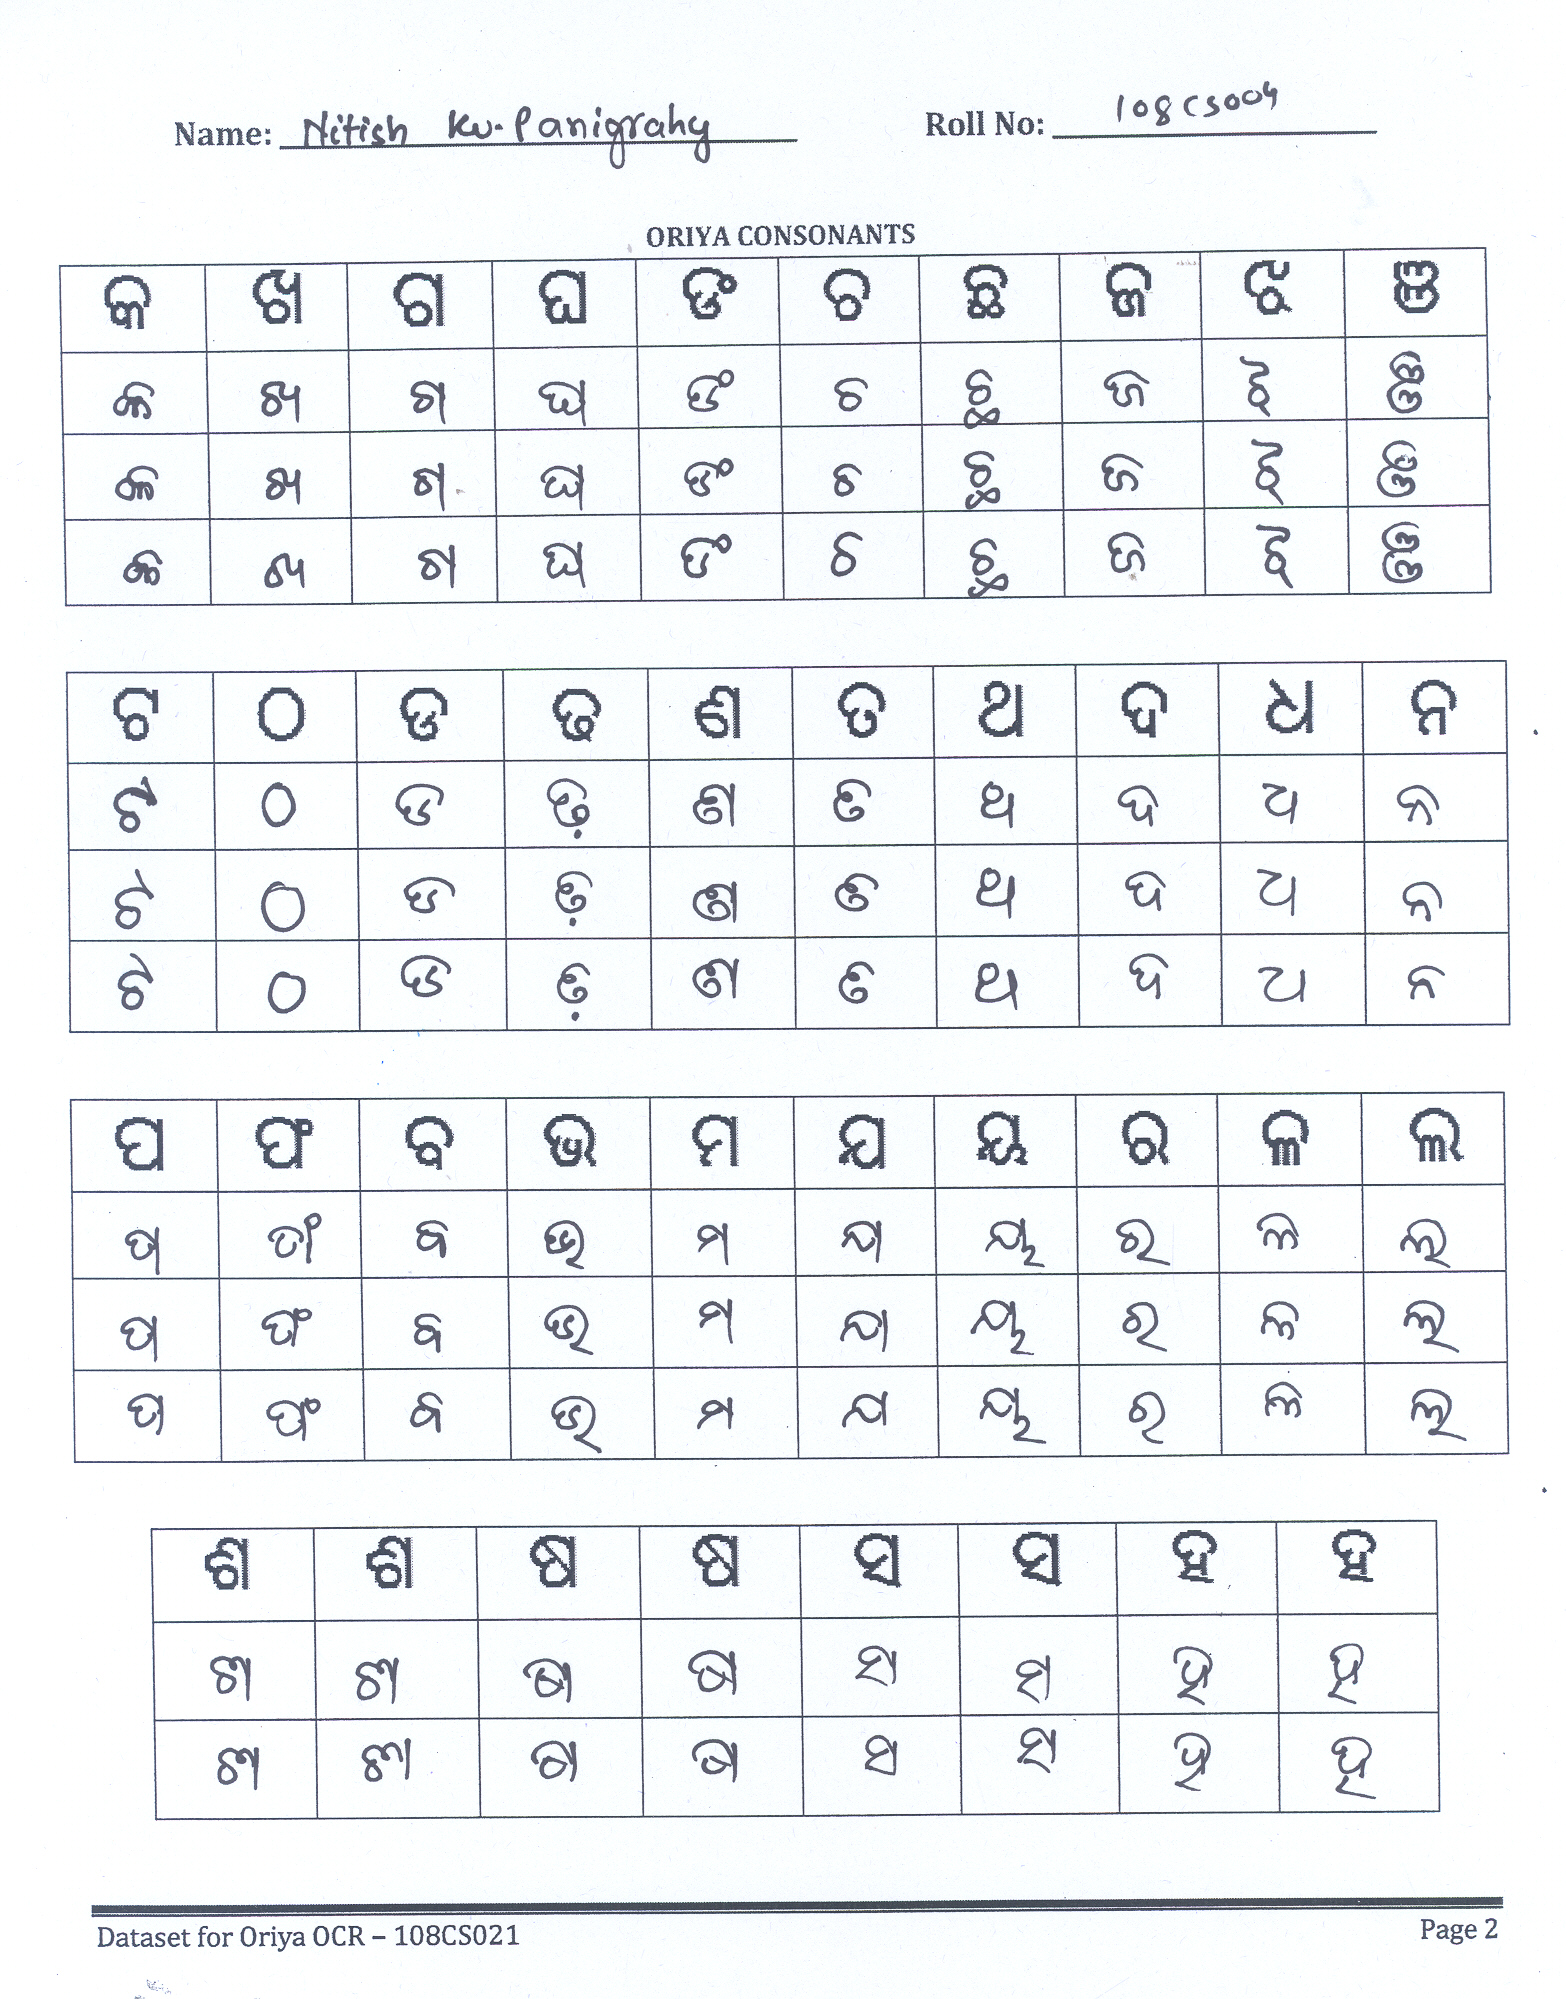 Name: Nitish Ku. Panigrahy Roll No: 108CS004
ORIYA CONSONANTS
କ ଖ ଗ ଘ ଙ ଚ ଛ ଜ ଝ ଞ
କ ଖ ଗ ଘ ଙ ଚ ଛ ଜ ଝ ଞ
କ ଖ ଗ ଘ ଙ ଚ ଛ ଜ ଝ ଞ
କ ଖ ଗ ଘ ଙ ଚ ଛ ଜ ଝ ଞ
ଟ ଠ ଡ ଢ ଣ ତ ଥ ଦ ଧ ନ
ଟ ଠ ଡ ଢ଼ ଣ ତ ଥ ଦ ଧ ନ
ଟ ଠ ଡ ଢ଼ ଣ ତ ଥ ଦ ଧ ନ
ଟ ଠ ଡ ଢ଼ ଣ ତ ଥ ଦ ଧ ନ
ପ ଫ ବ ଭ ମ ଯ ୟ ର ଳ ଲ
ପ ଫ ବ ଭ ମ ଯ ୟ ର ଳ ଲ
ପ ଫ ବ ଭ ମ ଯ ୟ ର ଳ ଲ
ପ ଫ ବ ଭ ମ ଯ ୟ ର ଳ ଲ
ଶ ଶ ଷ ଷ ସ ସ ହ ହ
ଶ ଶ ଷ ଷ ସ ସ ହ ହ
ଶ ଶ ଷ ଷ ସ ସ ହ ହ
Dataset for Oriya OCR – 108CS021 Page 2